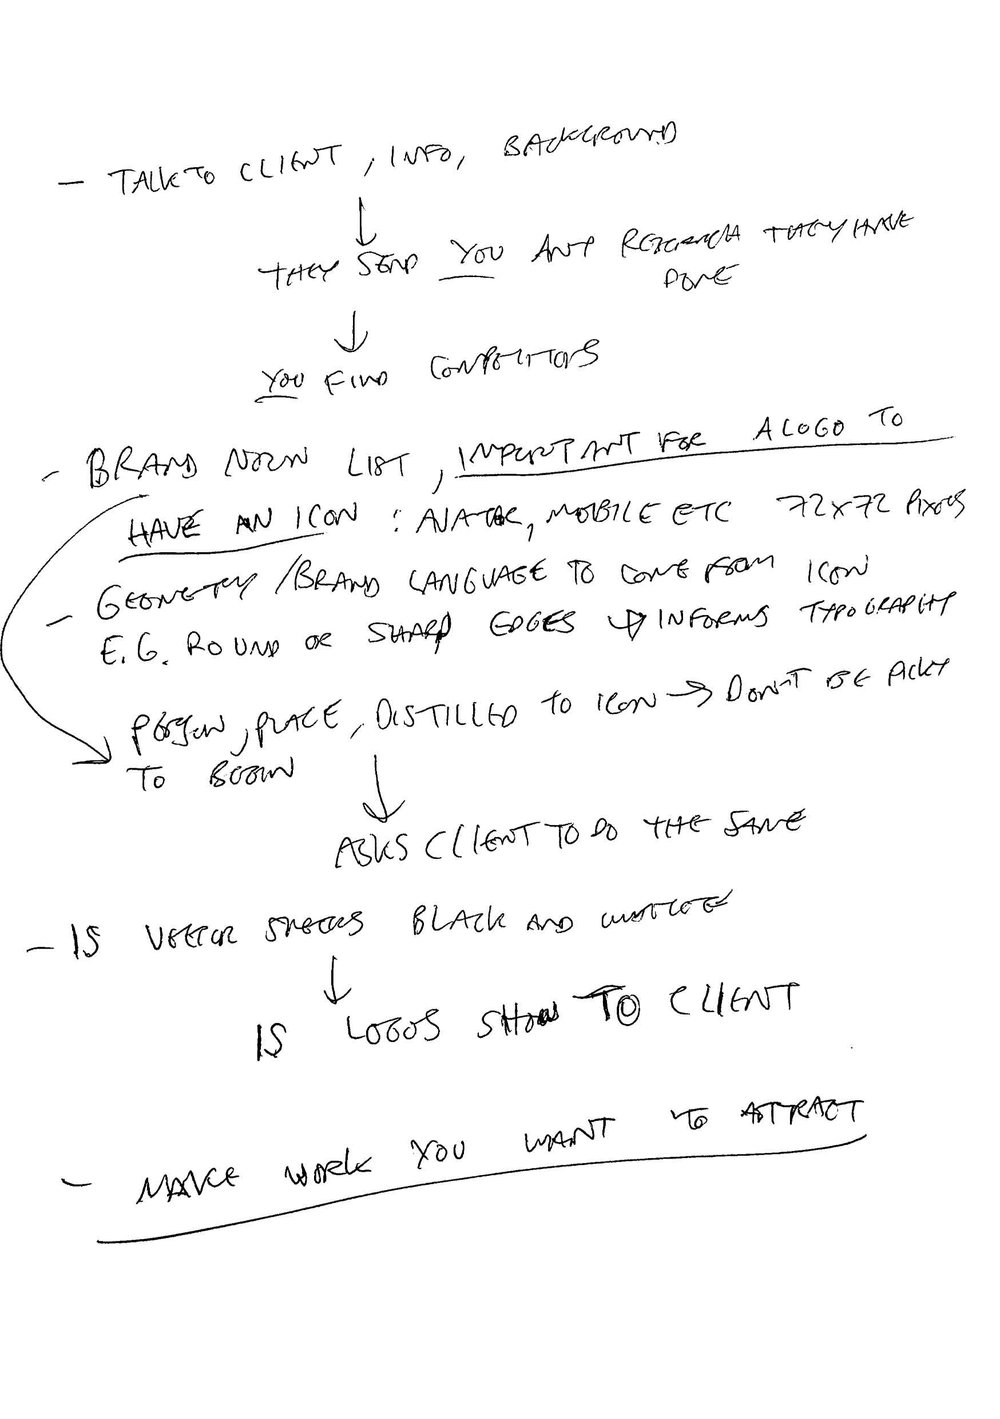 - TALK TO CLIENT, INFO, BACKGROUND
THEY SEND YOU ANY RESEARCH THEY HAVE
DONE
YOU FIND COMPETITORS
- BRAND NOUN LIST, IMPORTANT FOR A LOGO TO
HAVE AN ICON : AVATAR, MOBILE ETC 72x72 PIXELS
- GEOMETRY/BRAND LANGUAGE TO COME FROM ICON
E.G. ROUND OR SHARP EDGES → INFORMS TYPOGRAPHY
PERSON, PLACE, DISTILLED TO ICON → DON'T BE PICKY
TO BEGIN
ASKS CLIENT TO DO THE SAME
- 15 VECTOR BLACK AND WHITE
15 LOGOS SHOW TO CLIENT
- MAKE WORK YOU WANT TO ATTRACT